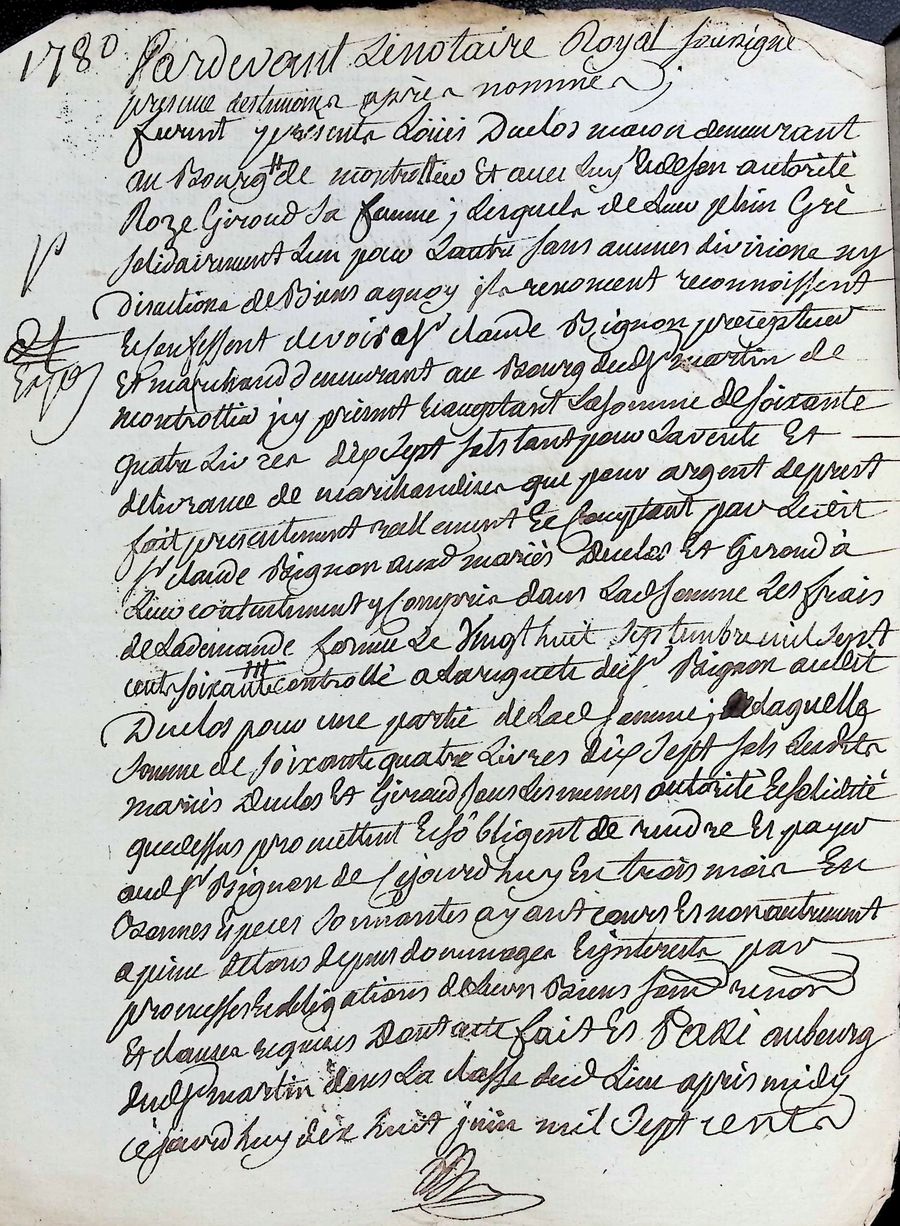 1780
Pardevant Le notaire Royal soussigné
presence des temoins après nommés ;
furent présents Loüis Duclos macon demeurant
au Bourg de montrottier Et avec Luy Et de son autorité
Roze Giroud sa femme ; Lesquels de Leur plein Gré
solidairement L'un pour L'autre sans aucunes divisions ny
discutions de Biens a quoy ils renoncent reconnoissent
Et confessent devoir a sr claude Bignon precepteur
Et marchand demeurant au Bourg dud st martin de
montrottier icy présent Et acceptant La somme de soixante
quatre Livres dix sept sols tant pour La vente Et
délivrance de marchandises que pour argent de prest
fait presentement reellement Et Comptant par Ledit
sr claude Bignon auxd mariés Duclos Et Giroud à
Leur contentement y Compris dans Lad somme Les frais
de La demande formée Le Vingt huit Septembre mil sept
cent soixante controllé a La requete dud sr Bignon audit
Duclos pour une partie de Lad somme ; de Laquelle
somme de soixante quatre Livres dix sept sols Lesdits
mariés Duclos Et Giroud sous Les memes autorité Et solidité
que dessus promettent Et s'obligent de rendre Et payer
aud sr Bignon de Cejourd'huy En trois mois En
Bonnes Especes sonnantes ayant cours Et non autrement
a peine de tous depens dommages Et interests par
promesses Et obligations de Leurs Biens soud renon
Et clauses requises Dont acte fait Et Passé au bourg
dud st martin dans La classe dud Lieu après midy
cejourd'huy dix huit juin mil Sept cents